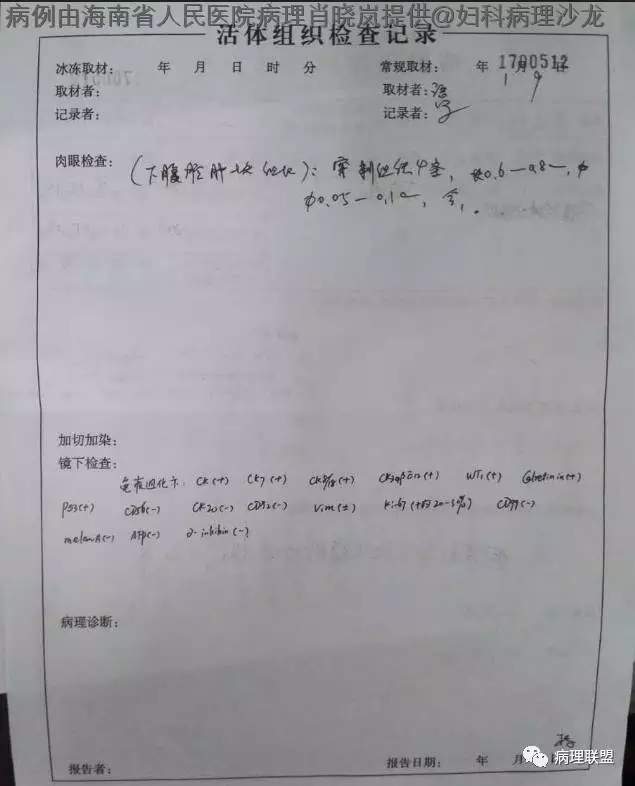 病例由海南省人民医院病理肖晓岚提供@妇科病理沙龙
活体组织检查记录
1700512
冰冻取材: 年 月 日 时 分 常规取材: 年 1 月 9 日
取材者: 取材者:
记录者: 记录者:
肉眼检查: (下腹腔肿块组织): 穿刺组织4条, 0.6-0.8
φ0.05-0.1, 全,
加切加染:
镜下检查:
免疫组化示: CK(+) CK7(+) CK5/6(+) WT1(+) Calretinin(+)
P53(+) CD56(-) CK20(-) Vim(±) Ki67(+约20-30%) CD99(-)
melanA(-) AFP(-) α-inhibin(-)
病理诊断:
报告者: 报告日期: 年 月
病理联盟